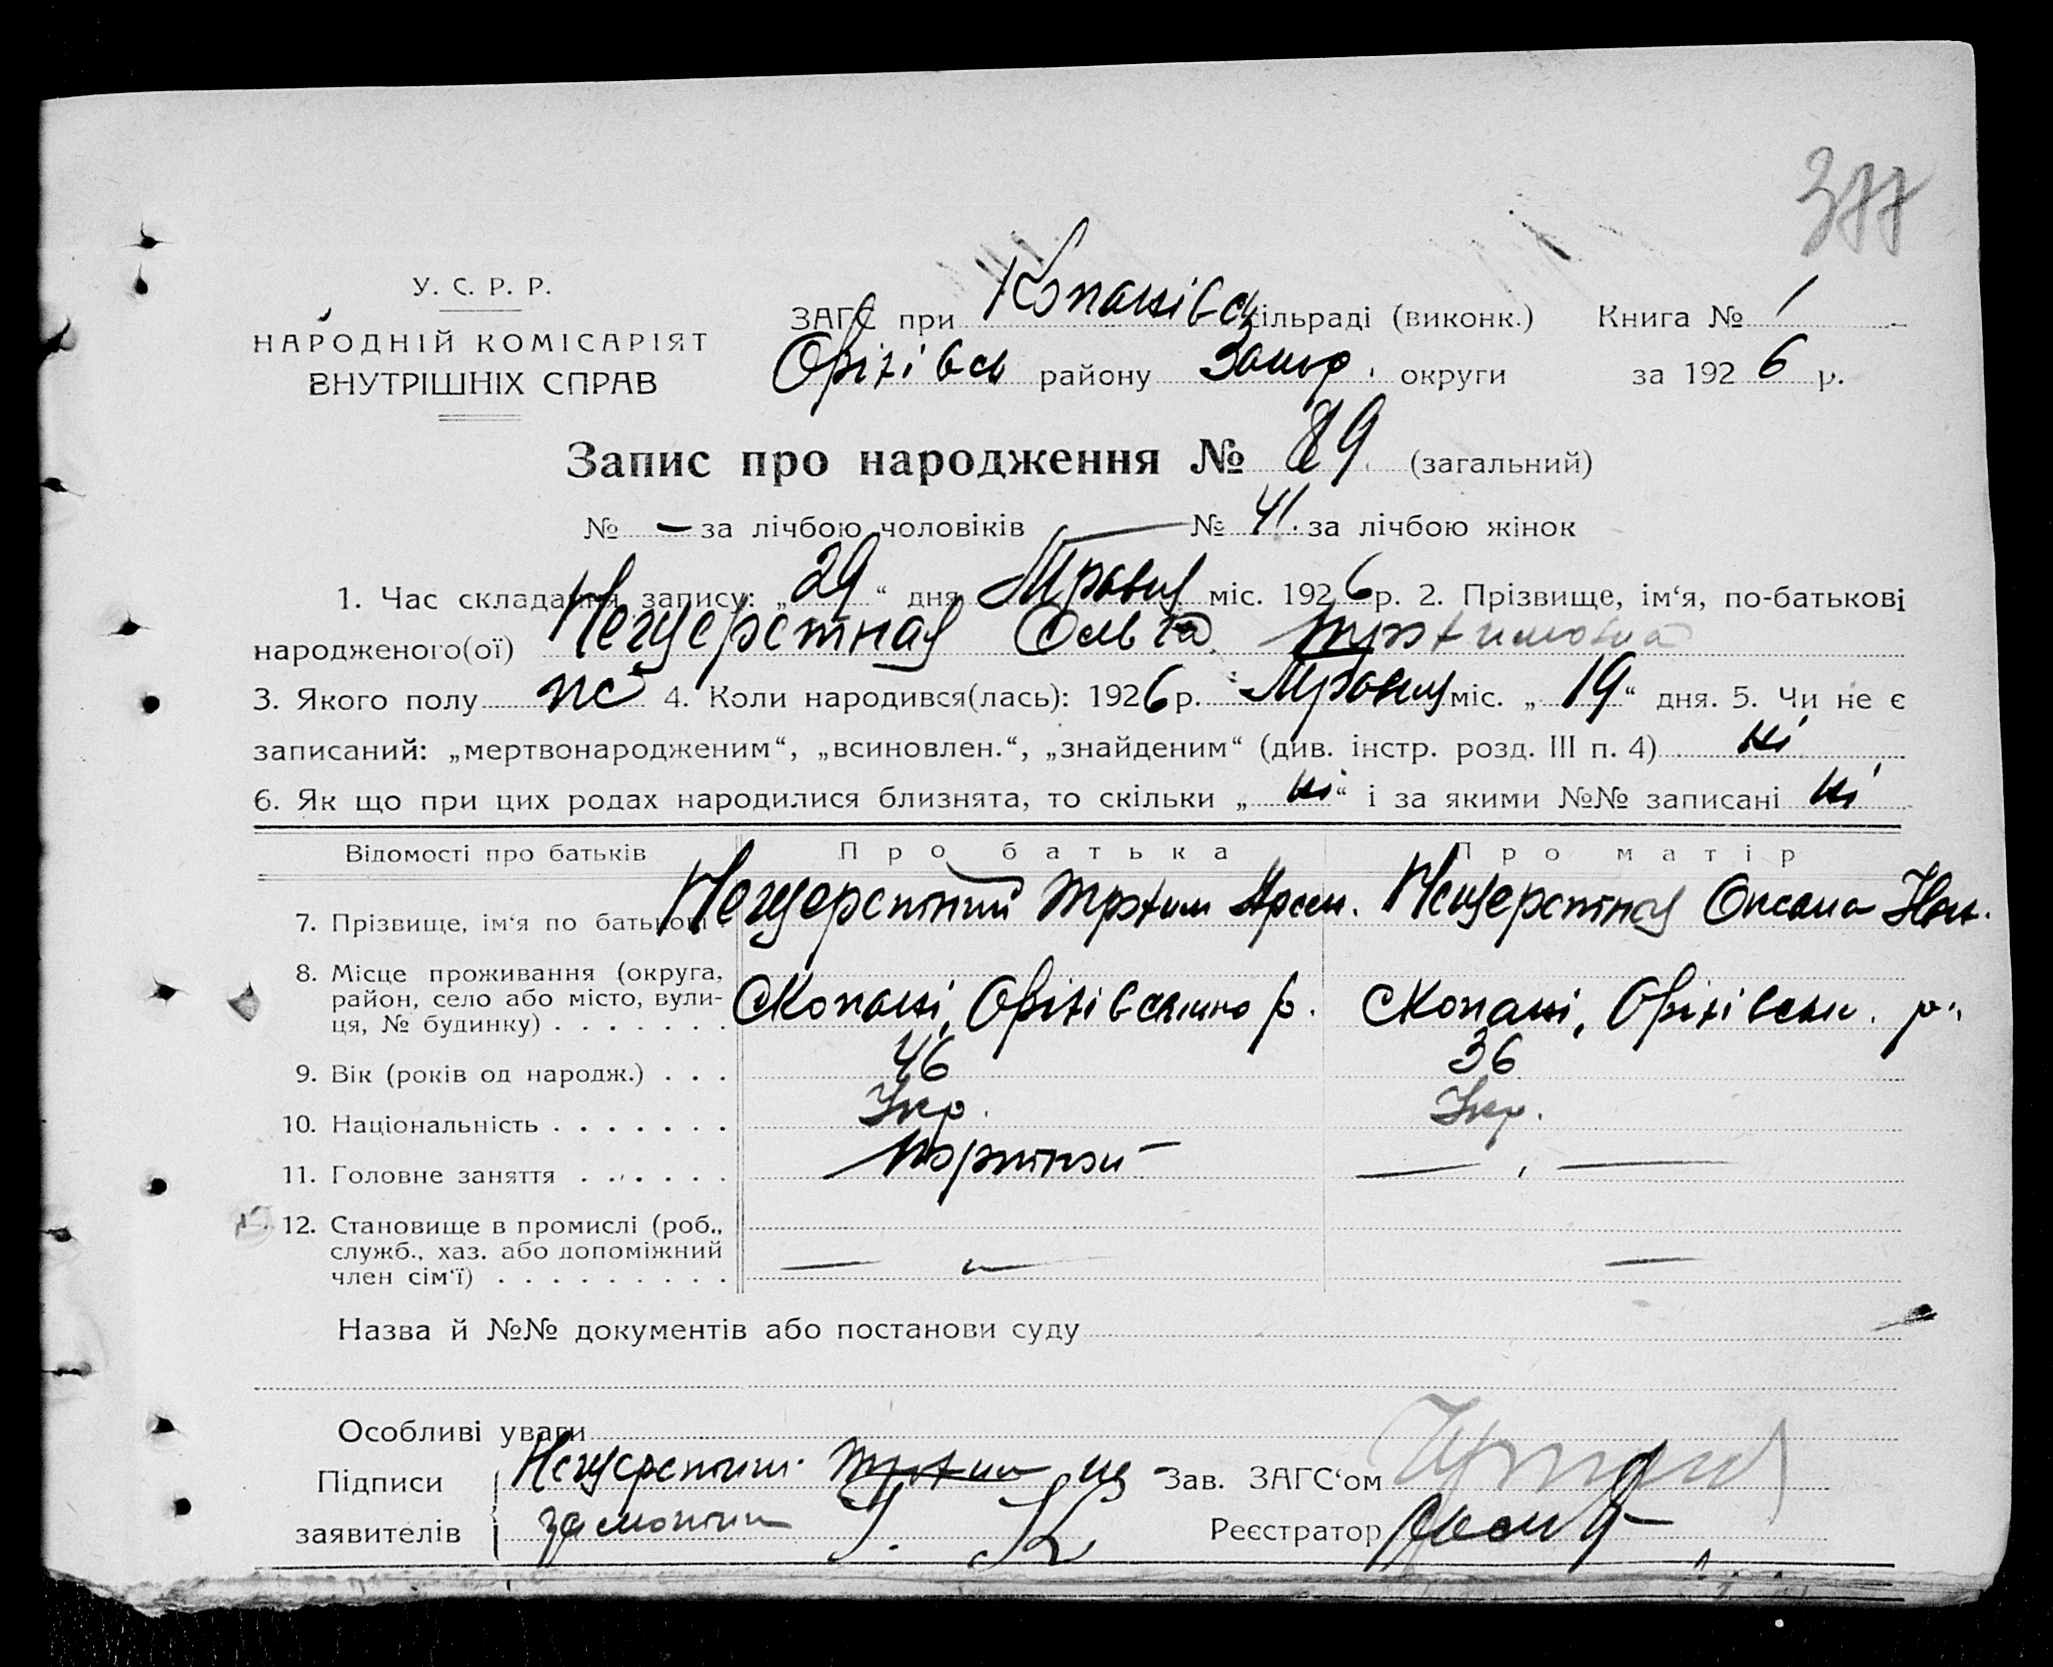 377
У. С. Р. Р.
НАРОДНІЙ КОМІСАРІЯТ
ВНУТРІШНІХ СПРАВ
ЗАГС при Копанівськ сільраді (виконк.) Книга № 1
Оріхівськ району Запор. округи за 1926 р.
Запис про народження № 89 (загальний)
№ — за лічбою чоловіків — № 41 за лічбою жінок
1. Час складання запису: „29“ дня Травня міс. 1926 р. 2. Прізвище, ім‘я, по-батькові
народженого(ої) Нещеретная Ольга Трохимовна
3. Якого полу жс 4. Коли народився(лась): 1926 р. Травня міс. „19“ дня. 5. Чи не є
записаний: „мертвонародженим“, „всиновлен.“, „знайденим“ (див. інстр. розд. III п. 4) ні
6. Як що при цих родах народилися близнята, то скільки „ні“ і за якими №№ записані ні
Відомості про батьків Про батька Про матір
7. Прізвище, ім‘я по батькові Трохим Арсен. Оксана
8. Місце проживання (округа,
район, село або місто, вули-
ця, № будинку) . . . . . . . Копані, Оріхівського р. Копані, Оріхівськ. р.
9. Вік (років од народж.) . . . 46 36
10. Національність . . . . . . . Укр. Укр.
11. Головне заняття . . . . . . — , —
12. Становище в промислі (роб.,
служб., хаз. або допоміжний
член сім‘ї) . . . . . . . . . — —
Назва й №№ документів або постанови суду
Особливі уваги
Підписи Трохим Зав. ЗАГС‘ом
заявителів Реєстратор